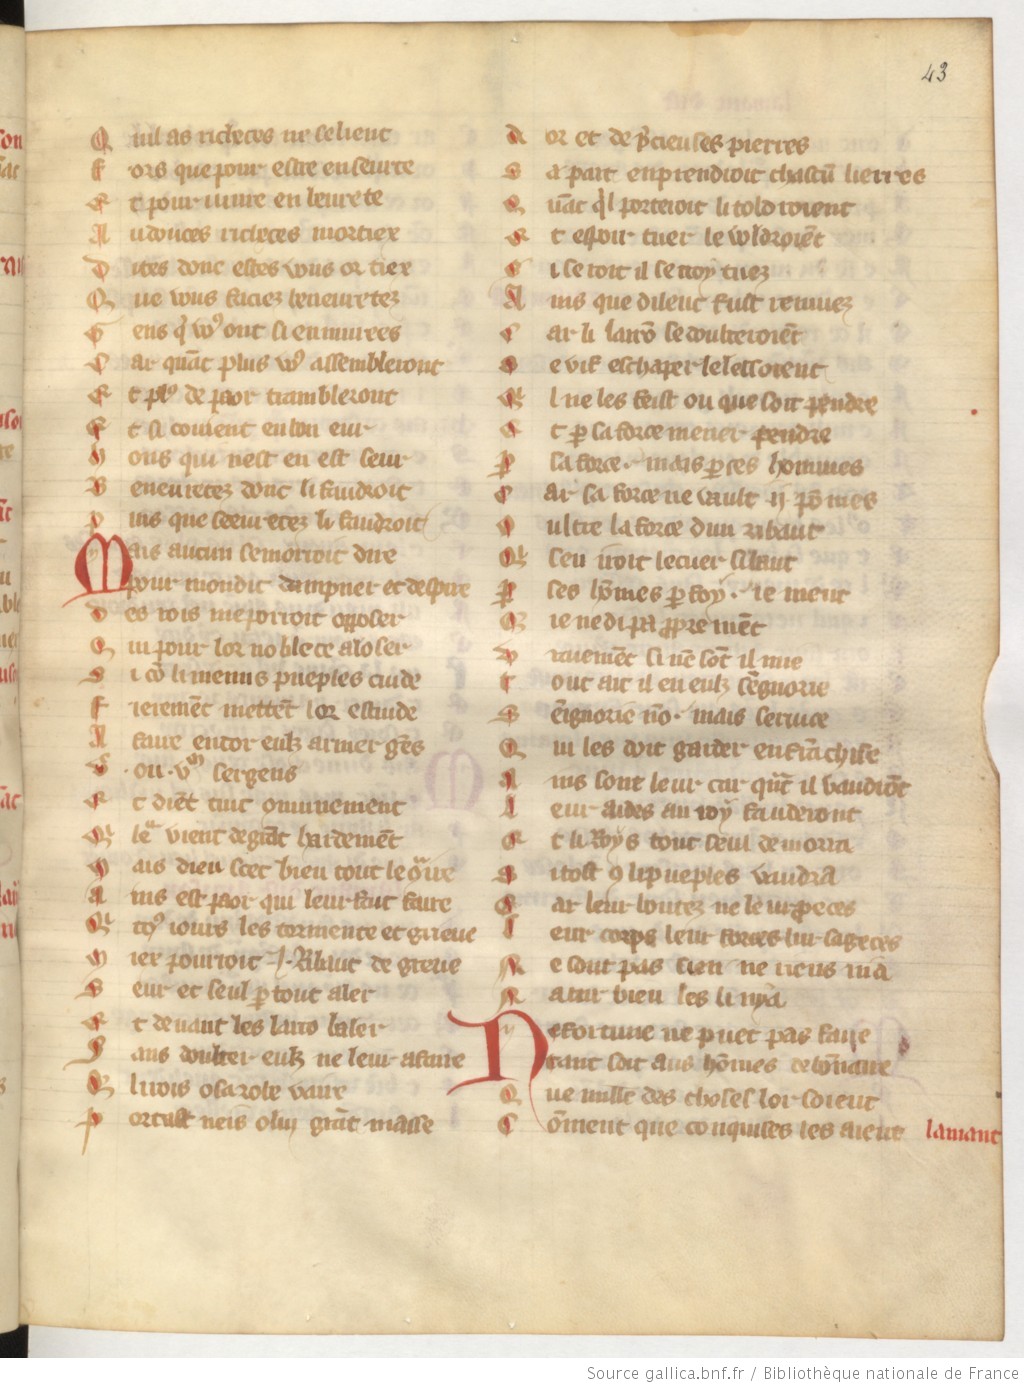 43
Q uil as richeces ne se lient
F ors que pour estre en seurte
E t pour viure en leurete
A v douces richeces mortiex
D ites donc estes vous or tiex
Q ue vous faciez beneuretez
G ens q̃ vꝰ ont si enmurees
C ar quãt plus vꝰ assembleront
E t plꝰ de paor trambleront
E t si couient en bon eur
h ons qui nest en est seur
B eneuretez donc li faudroit
P uis que seeuretez li faudroit
M ais aucun semorroit dire
pour mondit dampner et despire
D es rois me porroit opposer
Q ui pour lor noblece aloser
S i cõ li menus pueples cuide
F ieremẽt mettẽt lor estude
A faire entor eulz armer gẽs
.v. ou .vᶜ. sergens
E t diẽt tuit cmunement
Q le vient de grãt hardemẽt
M ais dieu scet bien tout le ꝯtire
A ins est paor qui leur fait faire
Q tꝰ iours les tormente et grieue
M iex pourroit .i. Ribaut de greue
S eur et seul ꝑ tout aler
E t deuant les larrõ baler
S ans doubter eulz ne leur afaire
Q li rois o sa robe vaire
P ortast neis o luy grãt masse
D or et de pͥcieuses pierres
S a part en prendroit chascũ lierres
Q uãt ql porteroit li toldroient
E t espoir tuer le voldroiẽt
C i seroit il se croy tuez
A ins que dilenc fust remuez
C ar li larrõ se doubteroiẽt
S e vif eschaper le lessoient
Q l ne les feist ou que soit prendre
E t ꝑ sa force mener pendre
P sa force. mais ꝑ ses hommes
C ar sa force ne vault .ij. põmes
O ultre la force dun ribaut
Q seu iroit le cuer si baut
P ses hõmes ꝑ foy. ie ment
Q ie ne di pa ꝓpremẽt
V raiemẽt si nẽ sõt il mie
T out ait il eu eulz sẽgnorie
S ẽignorie nõ. mais seruice
Q ui les doit garder en frãchise
A ins sont leur car qñt il vaudrõt
L eur aides au roy faudront
E t li Roys tout seul demorra
S i tost 9 li pueples vaudra
C ar leur bontez ne leur proeces
L eur corps leur forces lur sageces
N e sont pas sien ne riens ni a
N atur bien les li nya
N e fortune ne puet pas faire
tant soit aus hõmes debõnaire
Q ue nulle des choses lor soient
C õment que conquises les aient lamant
Source gallica.bnf.fr / Bibliothèque nationale de France